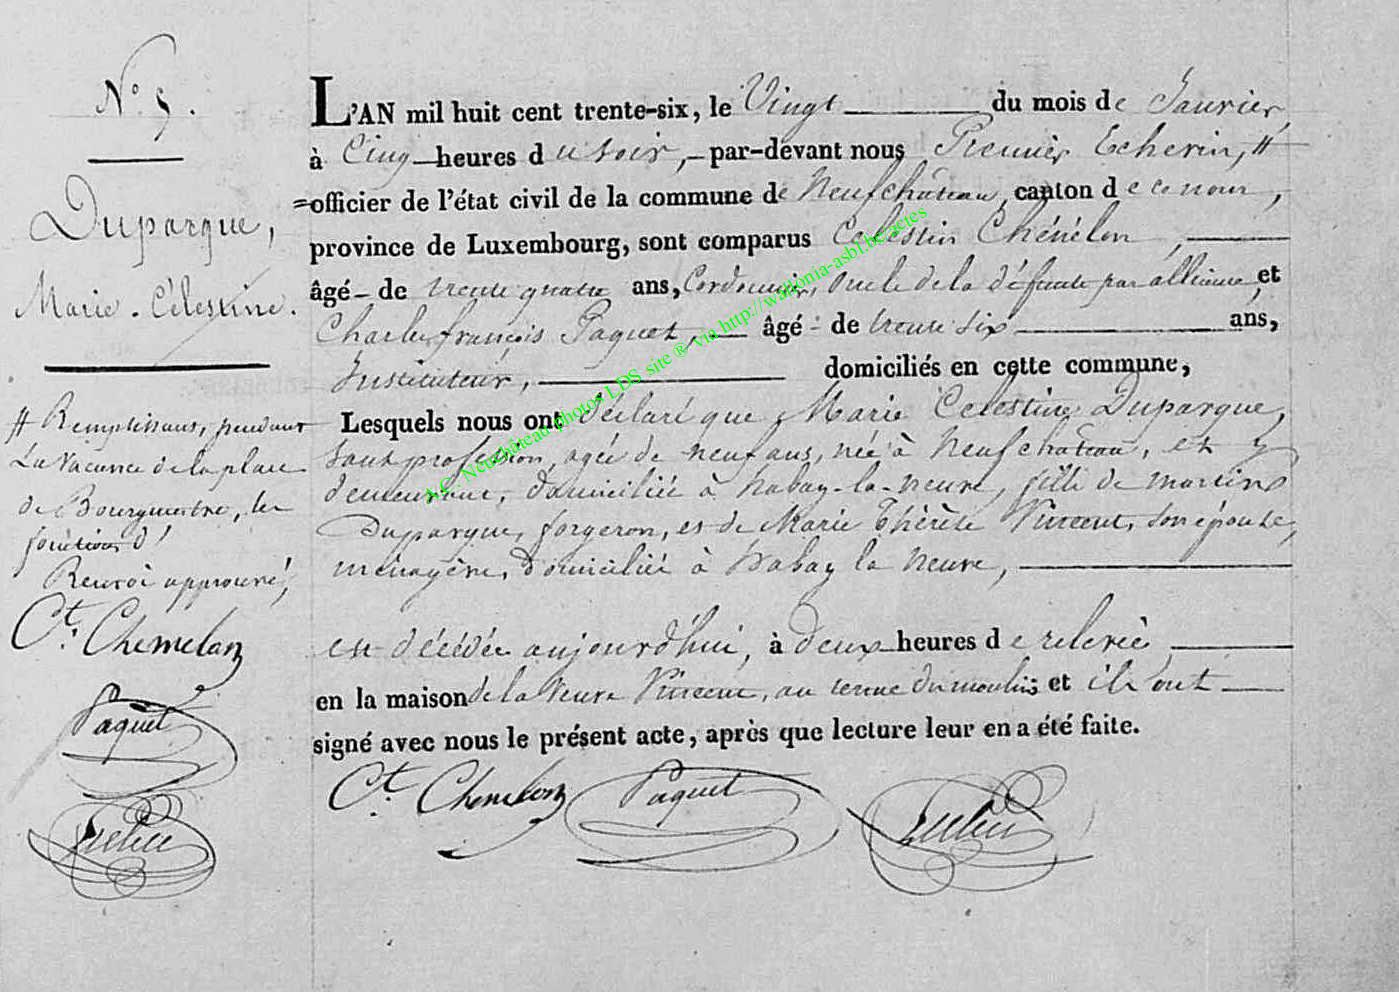 N.° 5.
Duparque,
Marie. Célestine.
# Remplissant, pendant
La Vacance de la place
de Bourgmestre, les
fonctions d'
Renvoi approuvé,
Ct. Chemelon
Paquet
L'AN mil huit cent trente-six, le Vingt du mois de Janvier,
à Cinq heures du soir, par-devant nous Premier Echevin, #
=officier de l'état civil de la commune de Neufchâteau, canton de ce nom,
province de Luxembourg, sont comparus Celestin Chémélon,
âgé de trente quatre ans, Cordonnier, oncle de la défunte par alliance, et
Charles françois Paquet, âgé de trente six ans,
Instituteur, domiciliés en cette commune,
Lesquels nous ont déclaré que Marie Celestine Duparque,
sans profession, agée de neuf ans, née à Neufchâteau, et y
demeurant, domiciliée à habay-la-neuve, fille de martin
Duparque, forgeron, et de Marie Thérèse Vincent, son épouse,
ménagère, domiciliée à habay la neuve,
est décédée aujourd'hui, à deux heures de relevée
en la maison de la veuve Vincent, au tenue du moulin; et ils ont
signé avec nous le présent acte, après que lecture leur en a été faite.
Ct. Chemelon Paquet
A.C. Neufchâteau photos LDS site ® via http://wallonia-asbl.be/actes